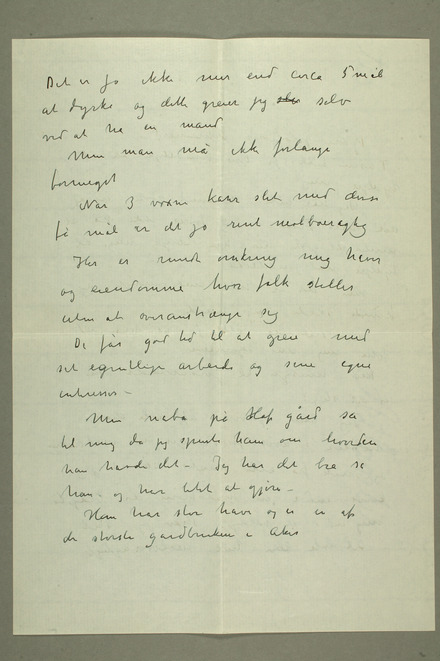 Det er jo ikke mer end circa 5 mål
at dyrke og dette greier jeg selv
ved at ha en mand
Men man må ikke forlange
formeget
Når 3 voxne kaver slik med disse
få mål er det jo rent
Her er rundt omkring mig haver
og eiendomme hvor folk steller
uten at overanstrænge sig
De får god tid til at greie med
sit egentlige arbeide og sine egne
interesser –
Min nabo på gård sa
til mig da jeg spurte ham om hvordan
han havde det – Jeg har det bra sa
han og har litet at gjøre –
Han har stor have og er en af
de største gårdbruken i Aker